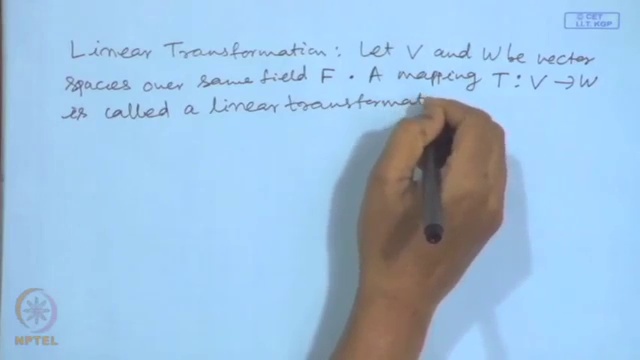 © CET
I.I.T. KGP
Linear Transformation: Let V and W be vector
spaces over same field F. A mapping T: V → W
is called a linear transformat
NPTEL